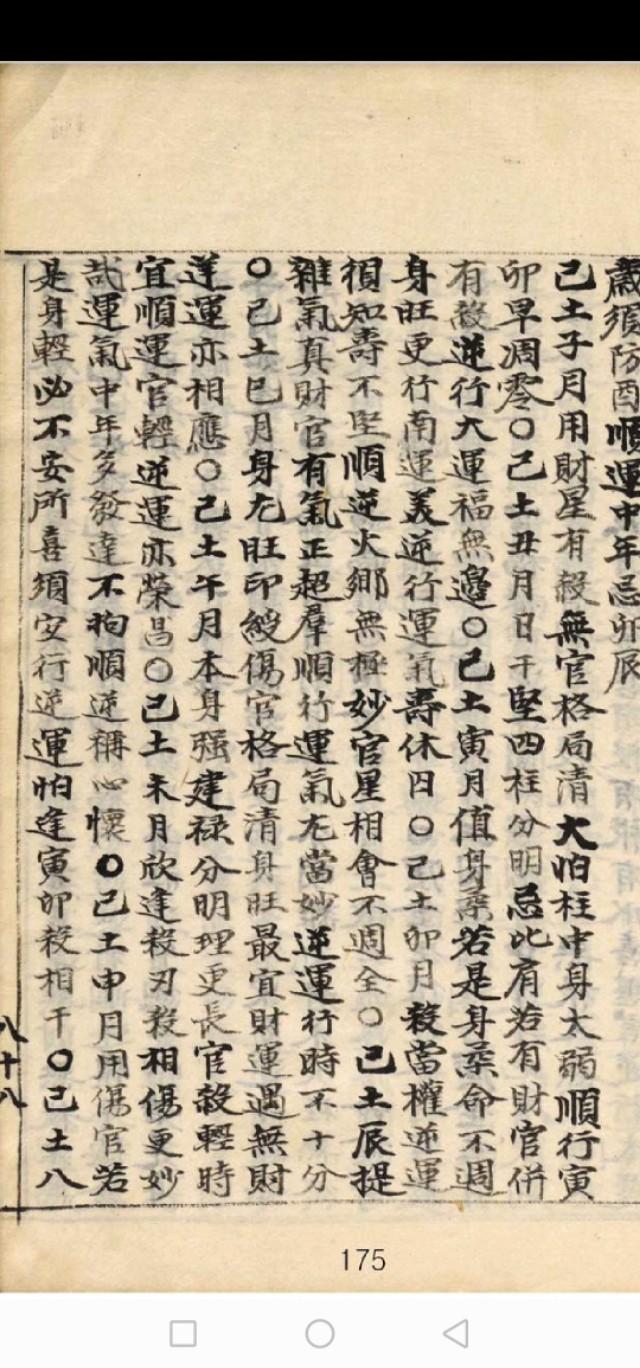 歲須防酉順運中年忌卯辰
己土子月用財星有殺無官格局清大怕柱中身太弱順行寅
卯早凋零〇己土丑月日干堅四柱分明忌比肩若有財官併
有殺逆行大運福無邊〇己土寅月值身柔若是身柔命不週
身旺更行南運美逆行運氣壽休囚〇己土卯月殺當權逆運
須知壽不堅順逆火鄉無極妙官星相會不週全〇己土辰提
雜氣真財官有氣正超羣順行運氣尤當妙逆運行時不十分
〇己土巳月身尤旺印綬傷官格局清身旺最宜財運遇無財
逆運亦相應〇己土午月本身强建祿分明理更長官殺輕時
宜順運官輕逆運亦榮昌〇己土未月欣逢殺刃殺相傷更妙
哉運氣中年多發達不拘順逆稱心懷〇己土申月用傷官若
是身輕必不安所喜須安行逆運怕逢寅卯殺相干〇己土八
八十八
175